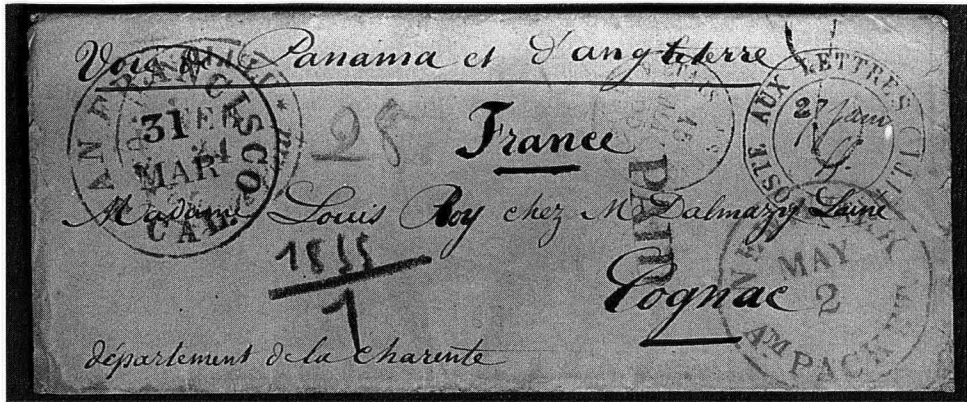 Voie de Panama et d'angleterre
SAN FRANCISCO CAL.
31
MAR
28
France
POSTE AUX LETTRES
27 janv
PAID
Madame Louis Roy chez M Dalmazy Lainé
1855
1
NEW YORK AM PACKET
MAY
2
Cognac
département de la Charente